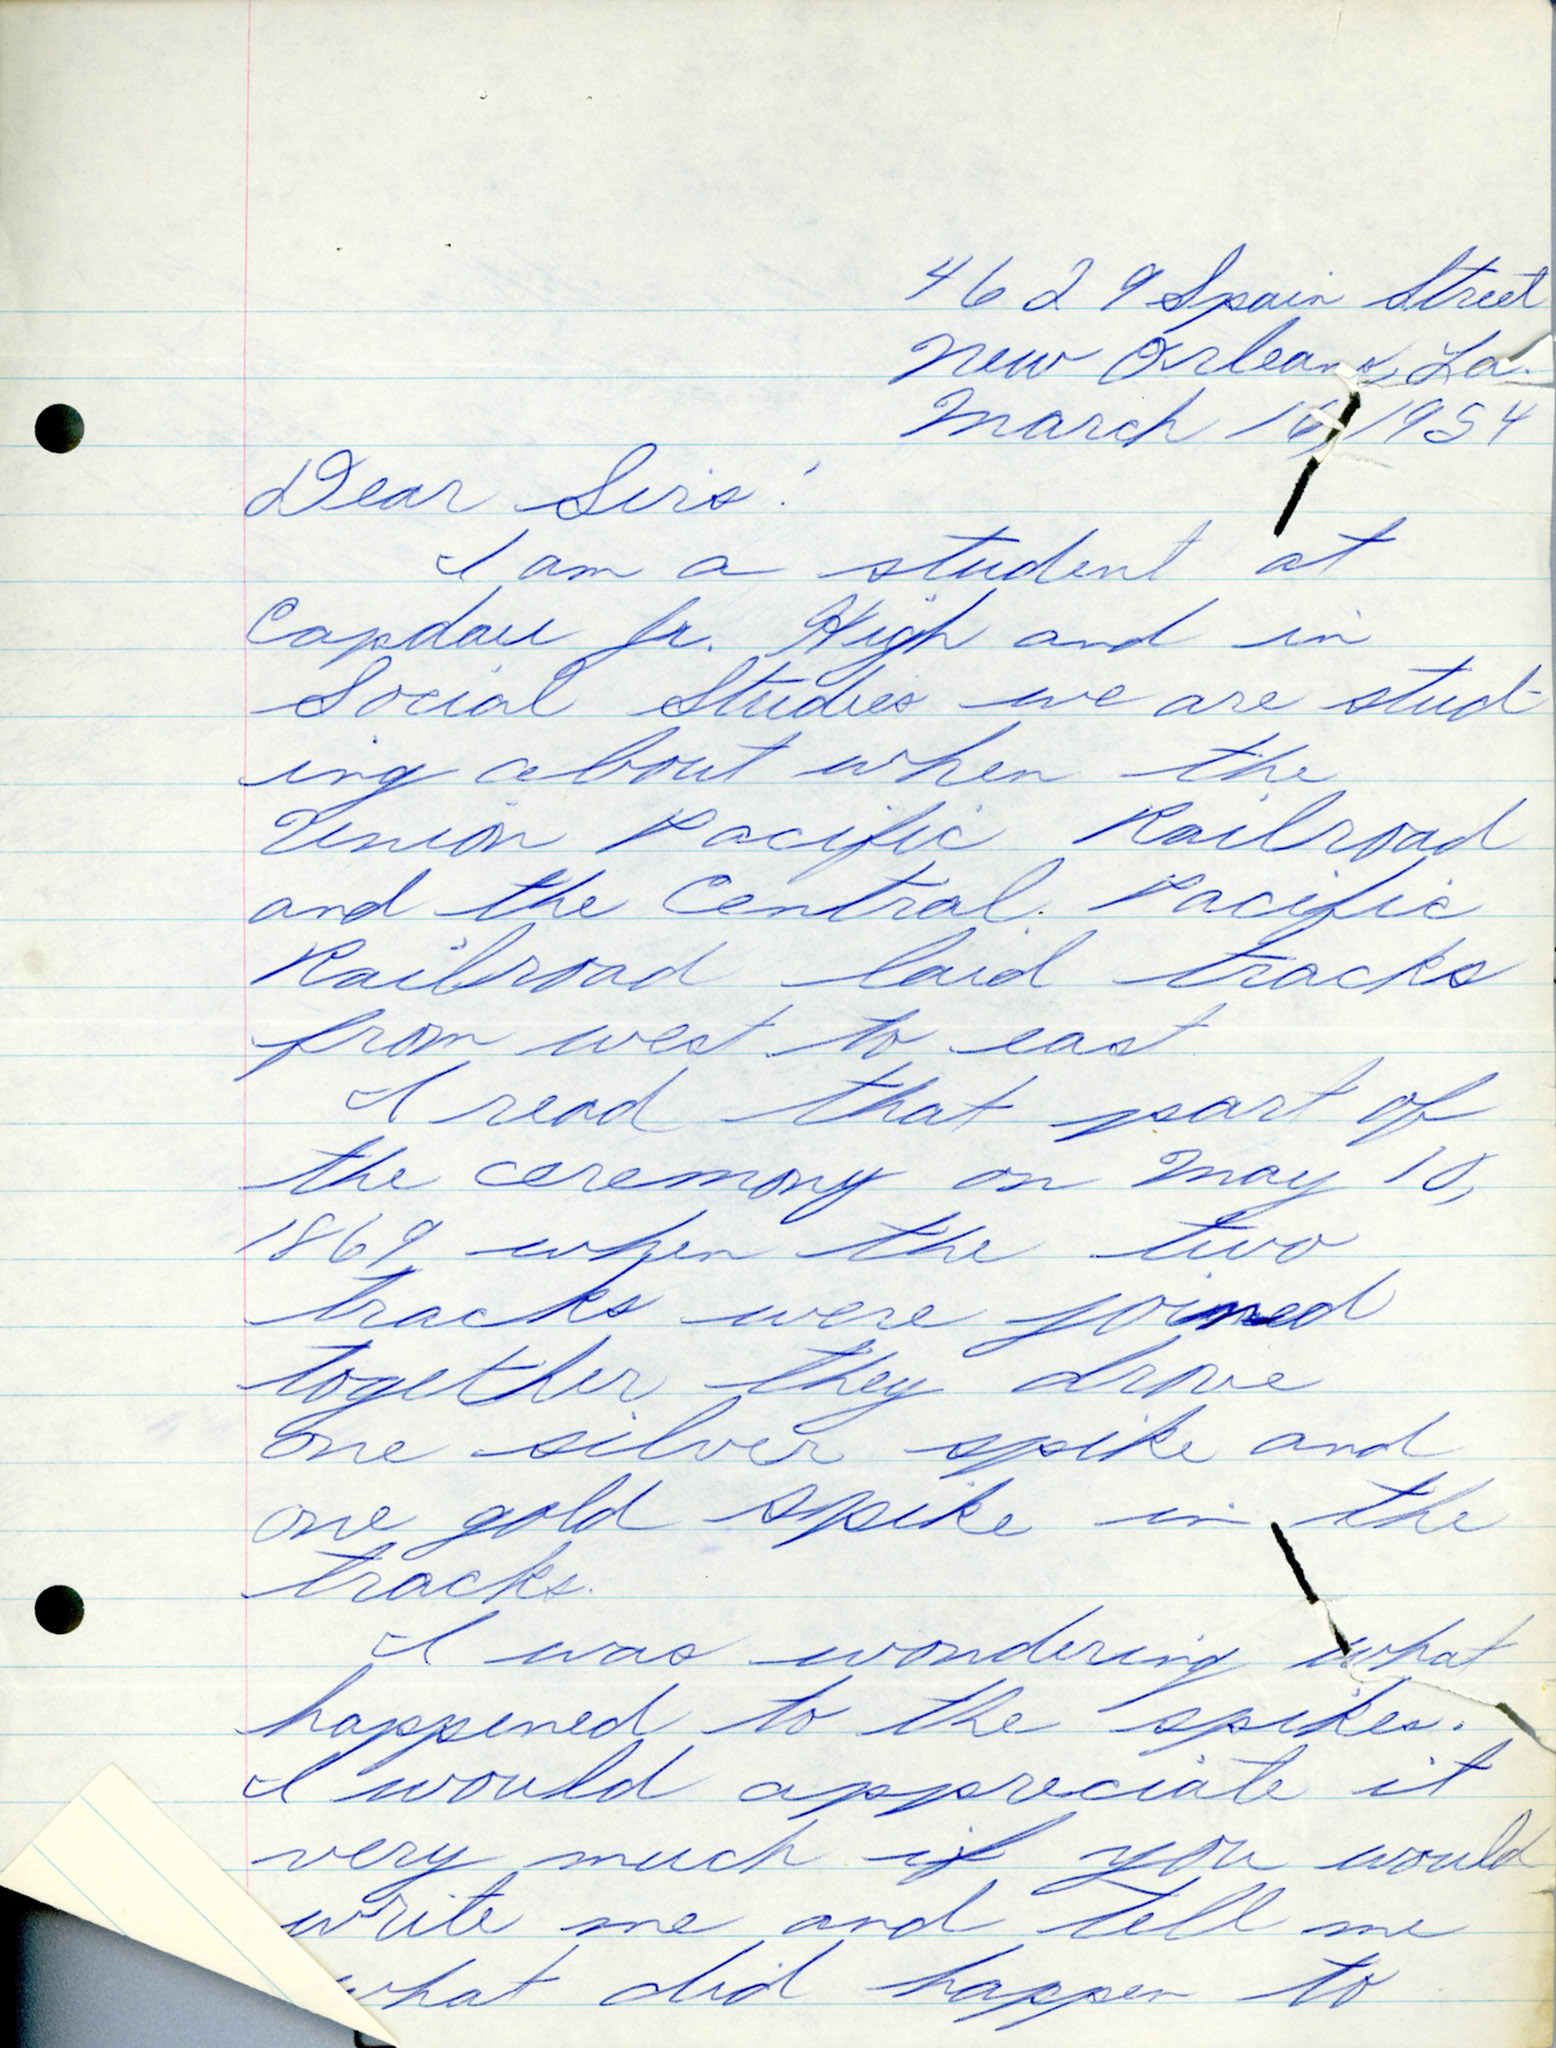 4629 Spain Street
New Orleans, La.
March 16, 1954
Dear Sirs:
I am a student at
Capdau Jr. High and in
Social Studies we are stud-
ing about when the
Union Pacific Railroad
and the Central Pacific
Railroad laid tracks
from west to east
I read that part of
the ceremony on May 10,
1869 when the two
tracks were joined
together they drove
one silver spike and
one gold spike in the
tracks.
I was wondering what
happened to the spikes.
I would appreciate it
very much if you would
write me and tell me
what did happen to